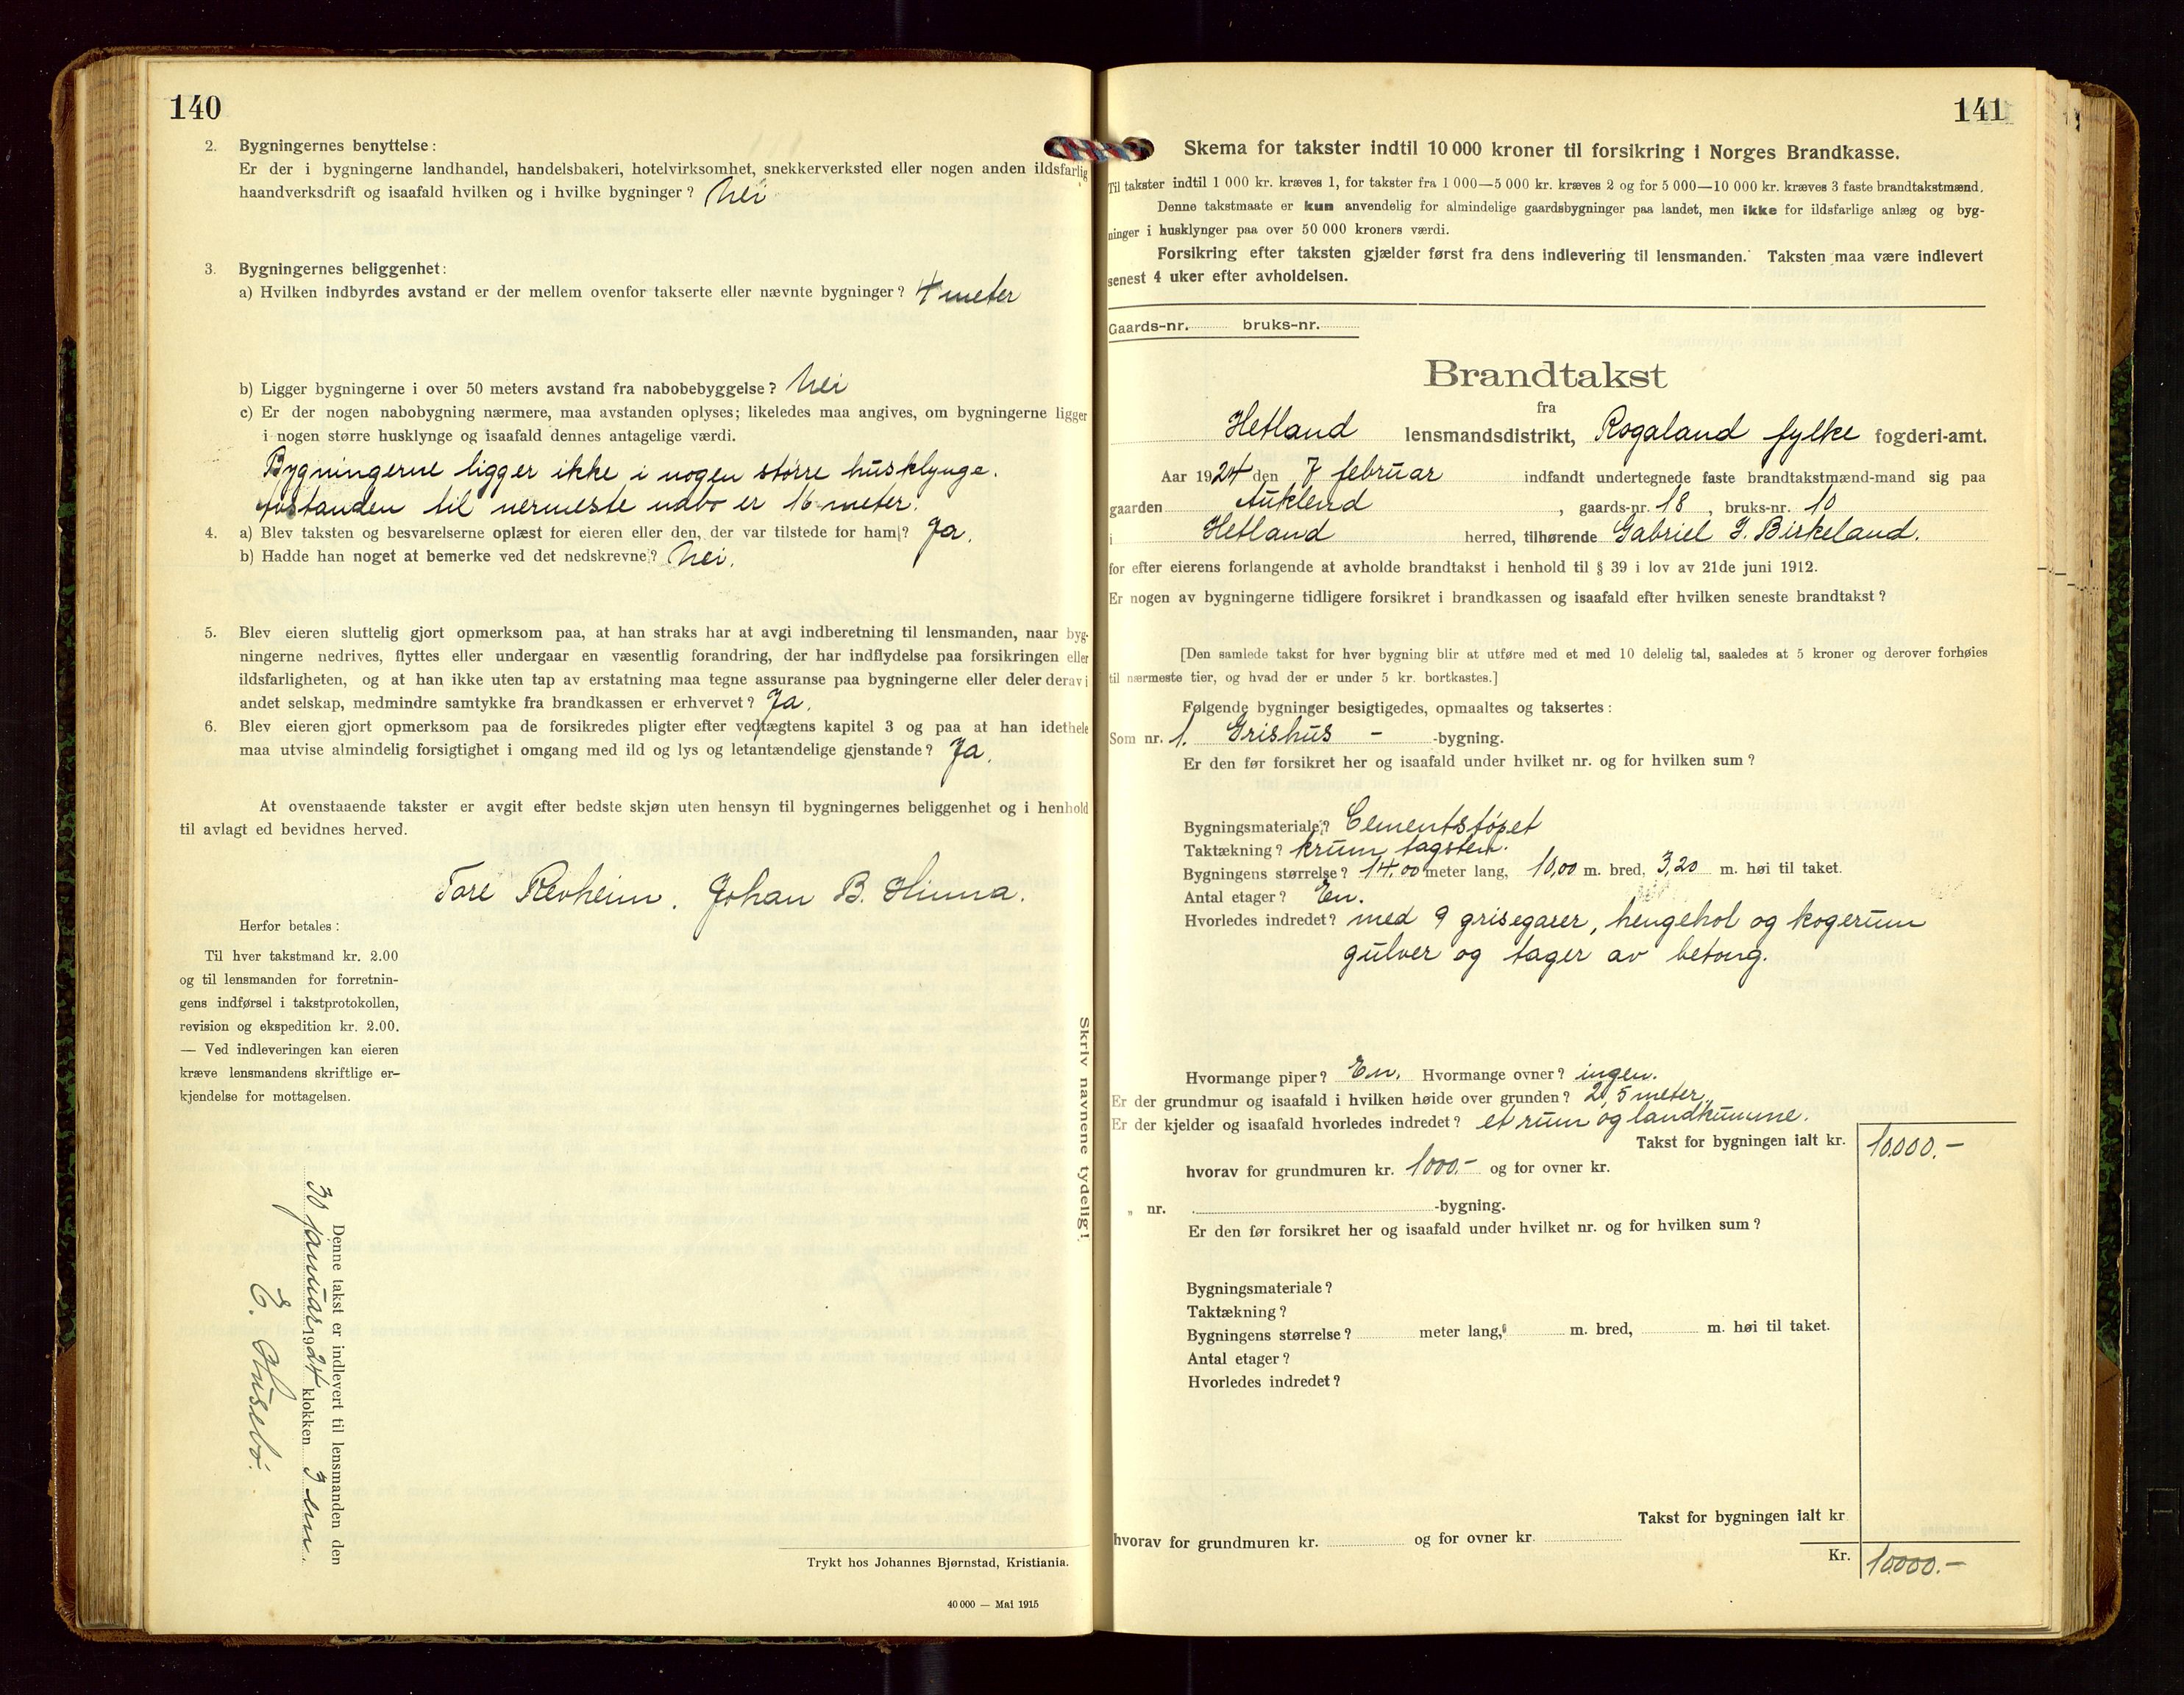 140
2. Bygningernes benyttelse:
Er der i bygningerne landhandel, handelsbakeri, hotelvirksomhet, snekkerverksted eller nogen anden ildsfarlig
haandverksdrift og isaafald hvilken og i hvilke bygninger? Nei
3. Bygningernes beliggenhet:
a) Hvilken indbyrdes avstand er der mellem ovenfor takserte eller nævnte bygninger? 4 meter
b) Ligger bygningerne i over 50 meters avstand fra nabobebyggelse? Nei
c) Er der nogen nabobygning nærmere, maa avstanden oplyses; likeledes maa angives, om bygningerne ligger
i nogen større husklynge og isaafald dennes antagelige værdi.
Bygningerne ligger ikke i nogen større husklynge.
Avstanden til nermeste nabo er 16 meter.
4. a) Blev taksten og besvarelserne oplæst for eieren eller den, der var tilstede for ham? Ja.
b) Hadde han noget at bemerke ved det nedskrevne? Nei.
5. Blev eieren sluttelig gjort opmerksom paa, at han straks har at avgi indberetning til lensmanden, naar byg-
ningerne nedrives, flyttes eller undergaar en væsentlig forandring, der har indflydelse paa forsikringen eller
ildsfarligheten, og at han ikke uten tap av erstatning maa tegne assuranse paa bygningerne eller deler derav i
andet selskap, medmindre samtykke fra brandkassen er erhvervet? Ja.
6. Blev eieren gjort opmerksom paa de forsikredes pligter efter vedtægtens kapitel 3 og paa at han idethele
maa utvise almindelig forsigtighet i omgang med ild og lys og letantændelige gjenstande? Ja.
At ovenstaaende takster er avgit efter bedste skjøn uten hensyn til bygningernes beliggenhet og i henhold
til avlagt ed bevidnes herved.
Tore Revheim. Johan B. Hinna.
Herfor betales:
Til hver takstmand kr. 2.00
og til lensmanden for forretnin-
gens indførsel i takstprotokollen,
revision og ekspedition kr. 2.00.
— Ved indleveringen kan eieren
kræve lensmandens skriftlige er-
kjendelse for mottagelsen.
Skriv navnene tydelig!
Denne takst er indlevert til lensmanden den
30 januar 1924 klokken 3 em.
E. Husebø.
Trykt hos Johannes Bjørnstad, Kristiania.
40 000 — Mai 1915
141
Skema for takster indtil 10 000 kroner til forsikring i Norges Brandkasse.
Til takster indtil 1 000 kr. kræves 1, for takster fra 1 000—5 000 kr. kræves 2 og for 5 000—10 000 kr. kræves 3 faste brandtakstmænd.
Denne takstmaate er kun anvendelig for almindelige gaardsbygninger paa landet, men ikke for ildsfarlige anlæg og byg-
ninger i husklynger paa over 50 000 kroners værdi.
Forsikring efter taksten gjælder først fra dens indlevering til lensmanden. Taksten maa være indlevert
senest 4 uker efter avholdelsen.
Gaards-nr. bruks-nr.
Brandtakst
fra
Hetland lensmandsdistrikt, Rogaland fylke fogderi-amt.
Aar 1924 den 7 februar indfandt undertegnede faste brandtakstmænd-mand sig paa
gaarden Auklend, gaards-nr. 18, bruks-nr. 10
i Hetland herred, tilhørende Gabriel J. Birkeland.
for efter eierens forlangende at avholde brandtakst i henhold til § 39 i lov av 21de juni 1912.
Er nogen av bygningerne tidligere forsikret i brandkassen og isaafald efter hvilken seneste brandtakst?
[Den samlede takst for hver bygning blir at utføre med et med 10 delelig tal, saaledes at 5 kroner og derover forhøies
til nærmeste tier, og hvad der er under 5 kr. bortkastes.]
Følgende bygninger besigtigedes, opmaaltes og taksertes:
Som nr. 1. Grishus - -bygning.
Er den før forsikret her og isaafald under hvilket nr. og for hvilken sum?
Bygningsmateriale? Cementstøpt
Taktækning? krum tagsten.
Bygningens størrelse? 14.00 meter lang, 10,00 m. bred, 3,20 m. høi til taket.
Antal etager? En.
Hvorledes indredet? med 9 grisegarer, hengehol og kogerum
gulver og tager av betong.
Hvormange piper? En. Hvormange ovner? ingen.
Er der grundmur og isaafald i hvilken høide over grunden? 2,5 meter.
Er der kjelder og isaafald hvorledes indredet? et rum og landkumme.
Takst for bygningen ialt kr. 10000.-
hvorav for grundmuren kr. 1000.- og for ovner kr.
„ nr. -bygning.
Er den før forsikret her og isaafald under hvilket nr. og for hvilken sum?
Bygningsmateriale?
Taktækning?
Bygningens størrelse? meter lang, m. bred, m. høi til taket.
Antal etager?
Hvorledes indredet?
Takst for bygningen ialt kr
hvorav for grundmuren kr. og for ovner kr.
Kr. 10000.-